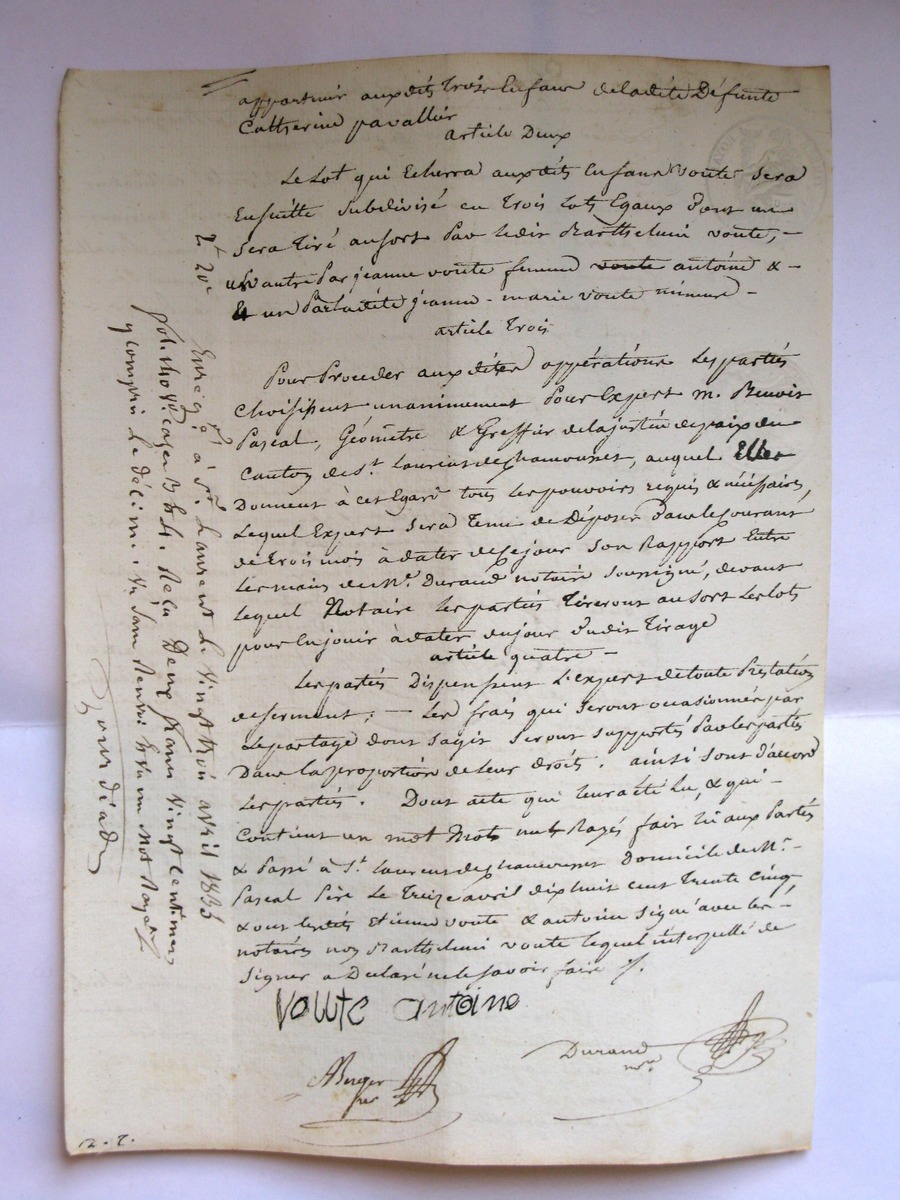 appartenir auxdits trois Enfans deladite Défunte
Catherine pavallier
article Deux
Le Lot qui Echerra auxdits Enfans voute sera
Ensuitte subdivisé en trois lots Egaux dont un
sera tiré ausort Par ledit Barthelmi voute, -
un autre Par jeanne voute femme voute antoine & -
& un Par ladite jeanne - marie voute mineure -
article trois
Pour Proceder aux dites oppérations les parties
Choisissent unanimement Pour Expert m. Benoit
Pascal, Géomètre & Greffier delajustice depaix du
Canton de St. Laurent dechamousset, auquel Elles
Donnent à cet Egard tous les pouvoirs requis & nécéssaires,
Lequel Expert sera tenu de Déposer dans le courant
de trois mois à dater de ce jour son Rapport Entre
les mains de Mr. Durand notaire soussigné, devant
lequel Notaire les parties tireront au sort les lots
pour En jouir à dater du jour dudit tirage
article quatre -
Les parties Dispensent L'expert de toute Prestation
de serment; - Les frais qui seront occasionnés par
le partage dont sagit seront supportés Par les parties
Dans la proportion de leur droits. ainsi sont d'accord
Les parties. Dont acte qui leur a été Lu, & qui -
Contient un mot Mots nuls Rayés fait lu aux Parties
& Passé à St. Laurent dechamousset Domicile de Mr. -
Pascal Père Le treize avril dix huit cent trente cinq
& ont lesdits Etienne voute & antoine signé avec les -
notaires non Barthelmi voute lequel interpellé de
signer a Déclaré ne le savoir faire /.
Voute antoine
Berger
Durand
nre
2t. 20c
Enregtré à St. Laurent le vingt trois avril 1835
fol. 140 Vo. Cases 3 & 4. Reçu Deux francs vingt centimes
y compris le décime. Vu sans Renvoi & Vu un Mot Rayé
2. 2.